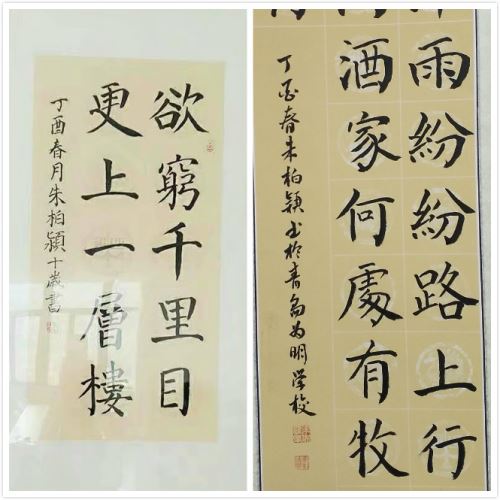 欲窮千里目
更上一層樓
丁酉春月朱柏穎十歲書
雨紛紛路上行
酒家何處有牧
丁酉春朱柏穎书於青岛为明学校